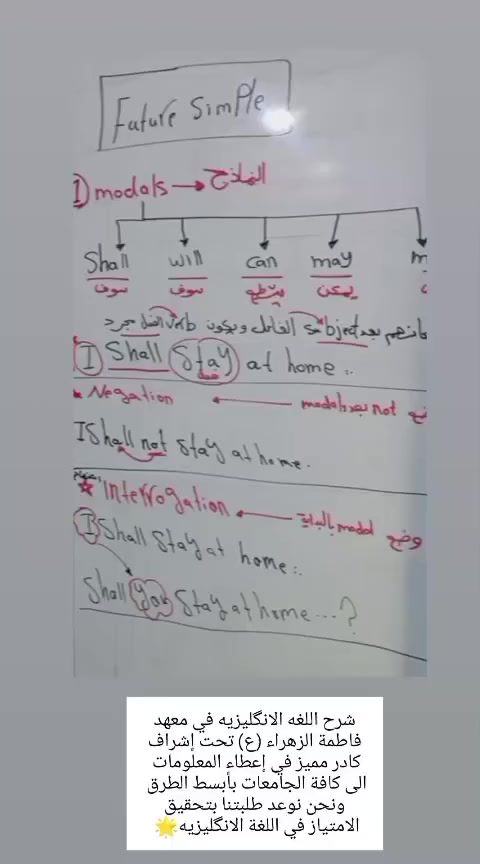 Future Simple
1) modals → النماذج
Shall will can may m
سوف سوف يستطيع يمكن
subject الفاعل ويكون verb الفعل مجرد
I Shall Stay at home :.
* Negation ← not بعد modals
I Shall not Stay at home.
☆ Interrogation ← وضع modal بالبداية
I Shall Stay at home :.
Shall you Stay at home ...?
شرح اللغه الانگليزيه في معهد
فاطمة الزهراء (ع) تحت إشراف
كادر مميز في إعطاء المعلومات
الى كافة الجامعات بأبسط الطرق
ونحن نوعد طلبتنا بتحقيق
الامتياز في اللغة الانگليزيه🌟